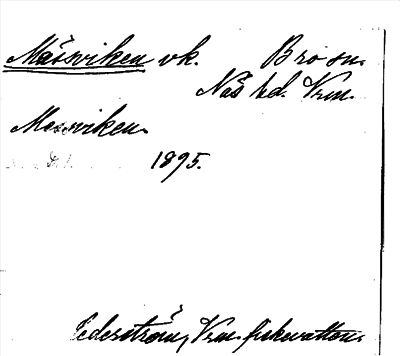 Mässviken vk. Bro sn.
Näs hd. Vrm.
Mossviken.
1895.
Cederström, Vrm. fiskevatten.